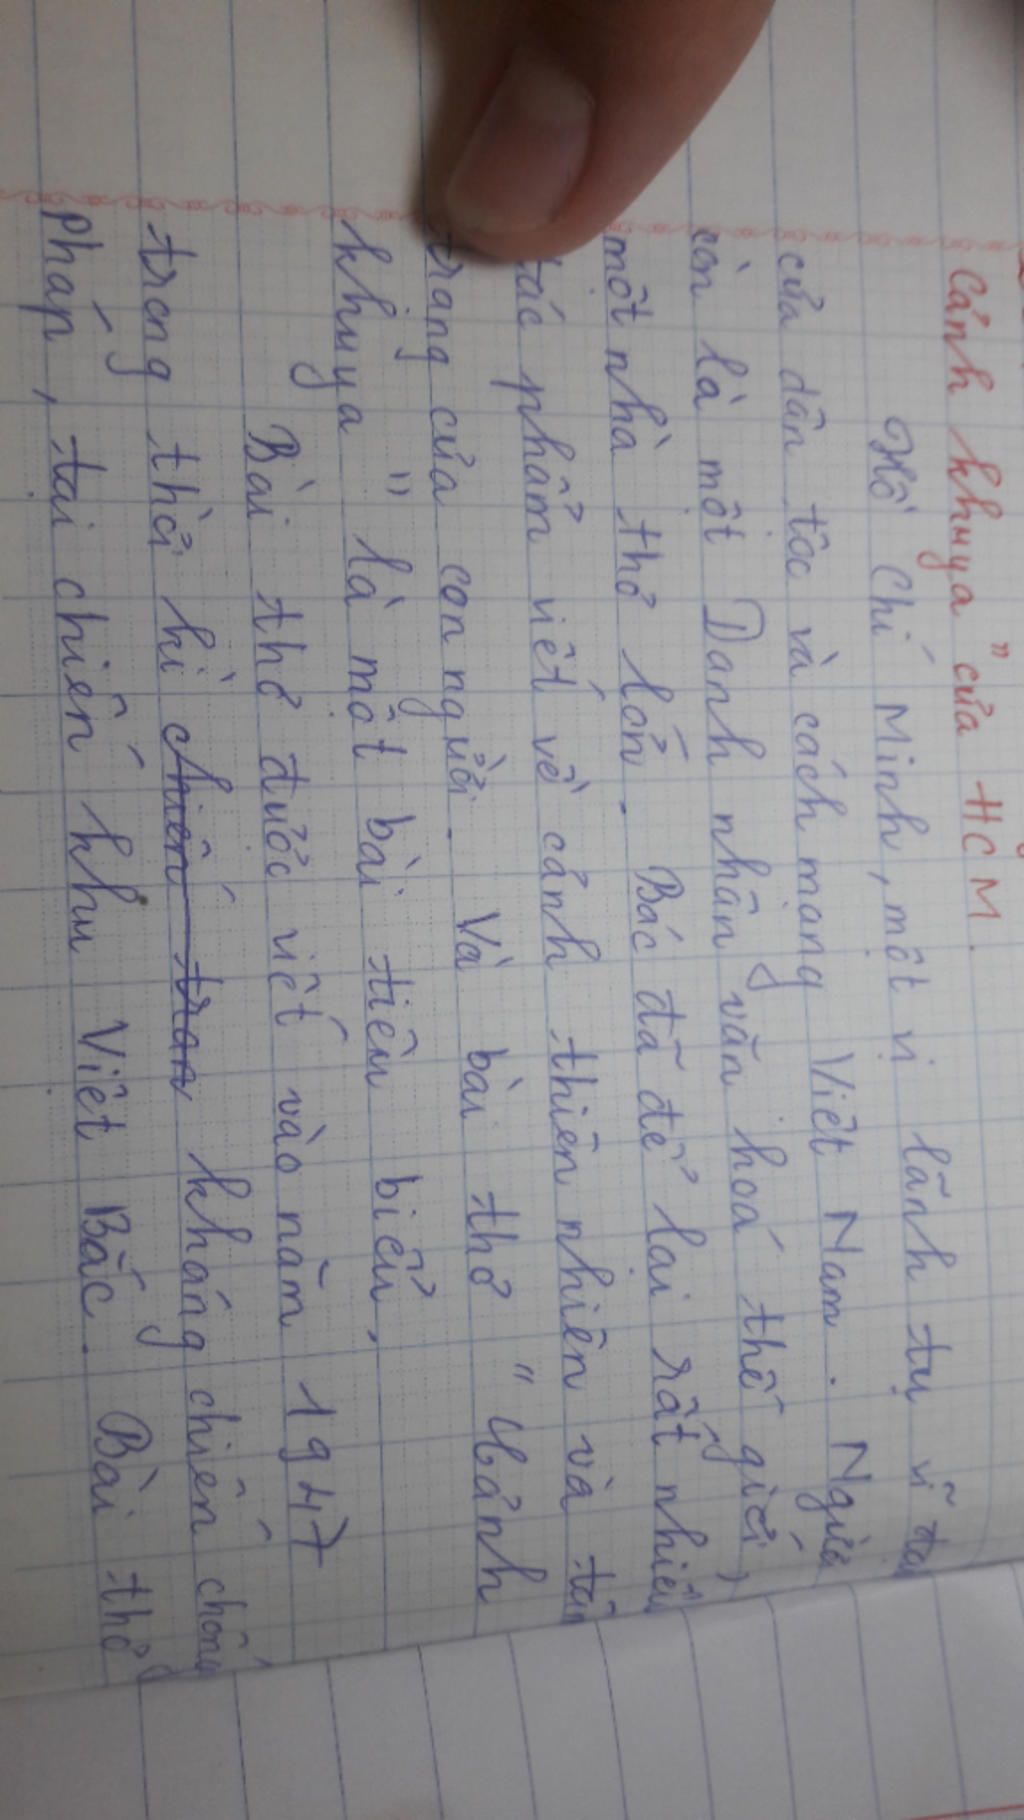 Cảnh khuya" của HCM.
Hồ Chí Minh, một vị lãnh tụ vĩ đại
của dân tộc và cách mạng Việt Nam. Người
còn là một Danh nhân văn hoá thế giới,
một nhà thơ lớn. Bác đã để lại rất nhiều
tác phẩm viết về cảnh thiên nhiên và tâm
trạng của con người. Và bài thơ "Cảnh
khuya" là một bài tiêu biểu,
Bài thơ được viết vào năm 1947
trong thời kì chiến tran kháng chiến chống
Pháp, tại chiến khu Việt Bắc. Bài thơ